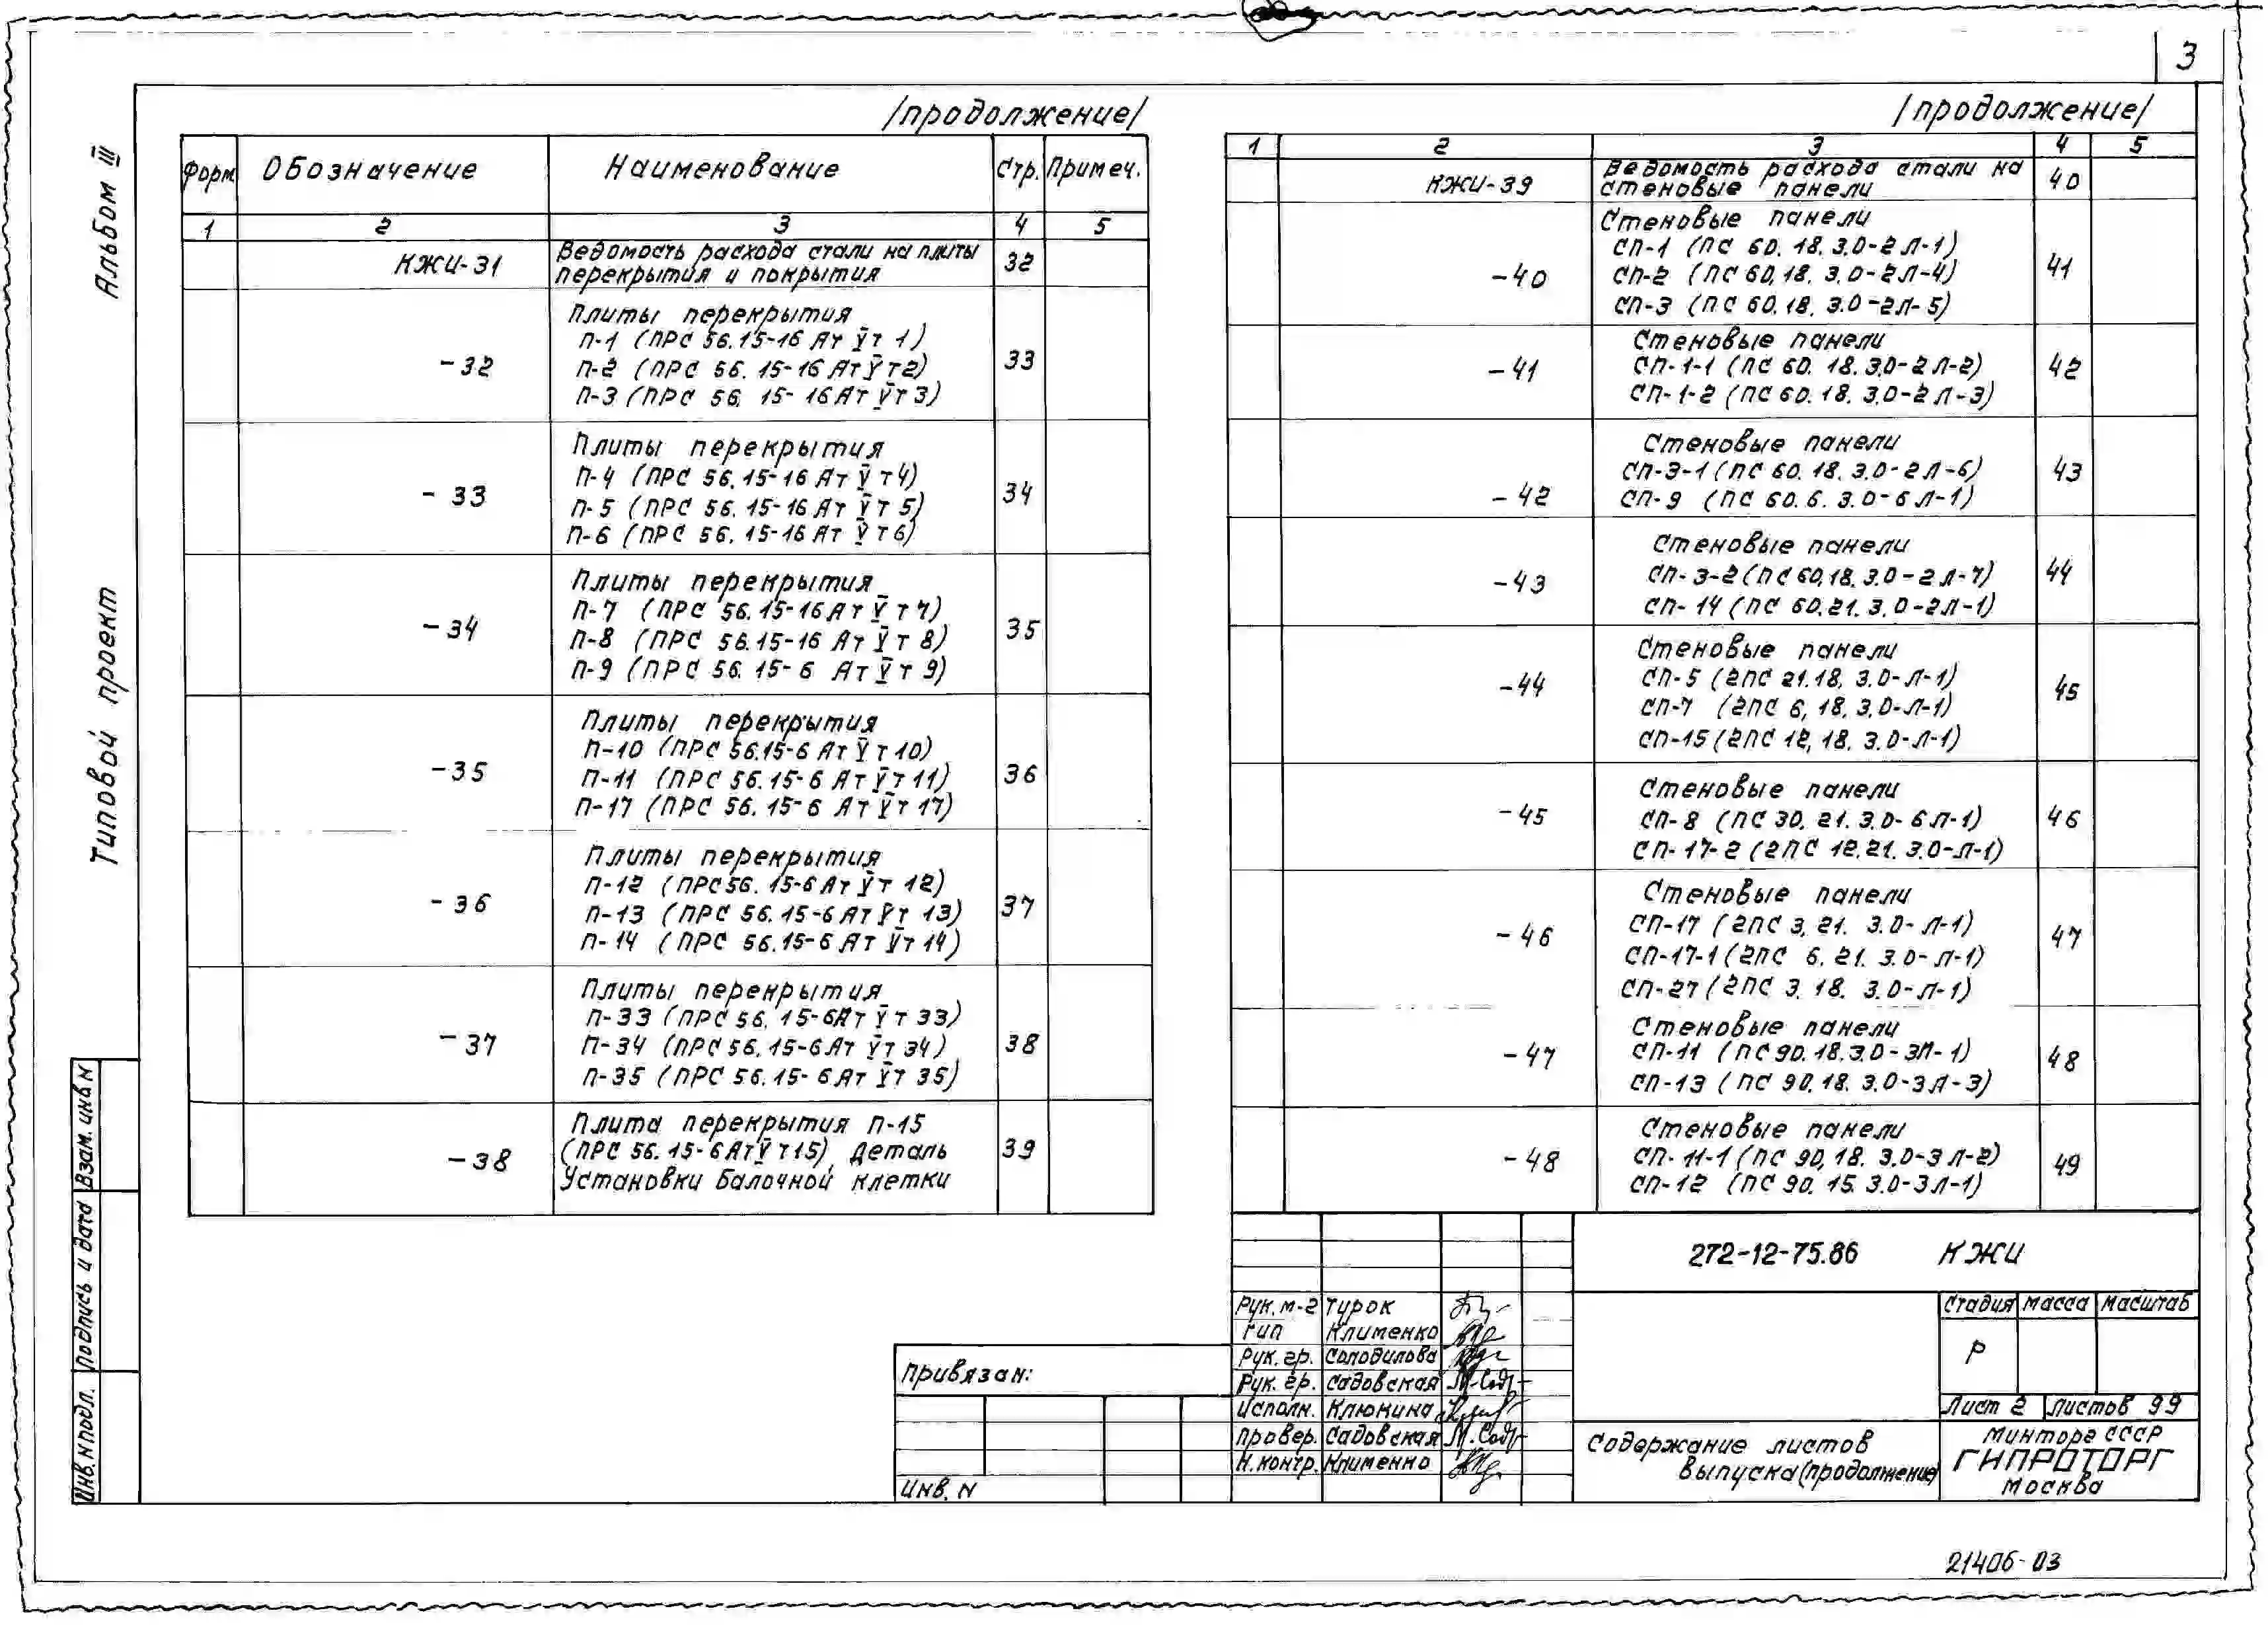 3
Альбом III
Типовой проект
/продолжение/
Форм. Обозначение Наименование Стр. Примеч.
1 2 3 4 5
КЖИ-31 Ведомость расхода стали на плиты
перекрытия и покрытия 32
Плиты перекрытия
П-1 (ПРС 56.15-16 Ат V т 1)
-32 П-2 (ПРС 56.15-16 Ат V т2) 33
П-3 (ПРС 56. 15-16Ат V т 3)
Плиты перекрытия
П-4 (ПРС 56.15-16 Ат V т4)
-33 П-5 (ПРС 56.15-16 Ат V т 5) 34
П-6 (ПРС 56.15-16 Ат V т6)
Плиты перекрытия
П-7 (ПРС 56.15-16Ат V т 7)
-34 П-8 (ПРС 56.15-16 Ат V т 8) 35
П-9 (ПРС 56.15-6 Ат V т 9)
Плиты перекрытия
П-10 (ПРС 56.15-6 Ат V т 10)
-35 П-11 (ПРС 56.15-6 Ат V т 11) 36
П-17 (ПРС 56.15-6 Ат V т 17)
Плиты перекрытия
П-12 (ПРС56.15-6Ат V т 12)
-36 П-13 (ПРС 56.15-6 Ат V т 13) 37
П-14 (ПРС 56.15-6 Ат V т 14)
Плиты перекрытия
П-33 (ПРС 56.15-6Ат V т 33)
-37 П-34 (ПРС 56.15-6Ат V т 34) 38
П-35 (ПРС 56.15-6Ат V т 35)
Плита перекрытия П-15
-38 (ПРС 56.15-6Ат V т15), Деталь 39
Установки балочной клетки
/продолжение/
1 2 3 4 5
КЖИ-39 Ведомость расхода стали на
стеновые панели 40
Стеновые панели
СП-1 (ПС 60.18.3.0-2Л-1)
-40 СП-2 (ПС 60.18.3.0-2Л-4) 41
СП-3 (ПС 60.18.3.0-2Л-5)
Стеновые панели
-41 СП-1-1 (ПС 60.18.3.0-2Л-2) 42
СП-1-2 (ПС 60.18.3.0-2Л-3)
Стеновые панели
СП-3-1 (ПС 60.18.3.0-2Л-6) 43
-42 СП-9 (ПС 60.6.3.0-6Л-1)
Стеновые панели
-43 СП-3-2 (ПС 60.18.3.0-2Л-7) 44
СП-14 (ПС 60.21.3.0-2Л-1)
Стеновые панели
-44 СП-5 (2ПС 21.18.3.0-Л-1) 45
СП-7 (2ПС 6,18.3.0-Л-1)
СП-15 (2ПС 12,18.3.0-Л-1)
Стеновые панели
-45 СП-8 (ПС 30.21.3.0-6Л-1) 46
СП-17-2 (2ПС 12.21.3.0-Л-1)
Стеновые панели
СП-17 (2ПС 3,21.3.0-Л-1)
-46 СП-17-1 (2ПС 6.21.3.0-Л-1) 47
СП-27 (2ПС 3.18.3.0-Л-1)
Стеновые панели
-47 СП-11 (ПС 90.18.3.0-3Л-1) 48
СП-13 (ПС 90.18.3.0-3Л-3)
Стеновые панели
-48 СП-11-1 (ПС 90,18.3.0-3Л-2) 49
СП-12 (ПС 90.15.3.0-3Л-1)
272-12-75.86 КЖИ
Рук. м-2 Турок
ГИП Клименко
Рук. гр. Солодилова
Рук. гр. Садовская М. Сад
Исполн. Клюкина
Провер. Садовская М. Сад
Н. контр. Клименко
Стадия Масса Масштаб
Р
Лист 2 Листов 99
Содержание листов
выпуска (продолжение)
Минторг СССР
ГИПРОТОРГ
Москва
Привязан:
Инв. N
Взам. инв N
Подпись и дата
Инв. N подл.
21406-03